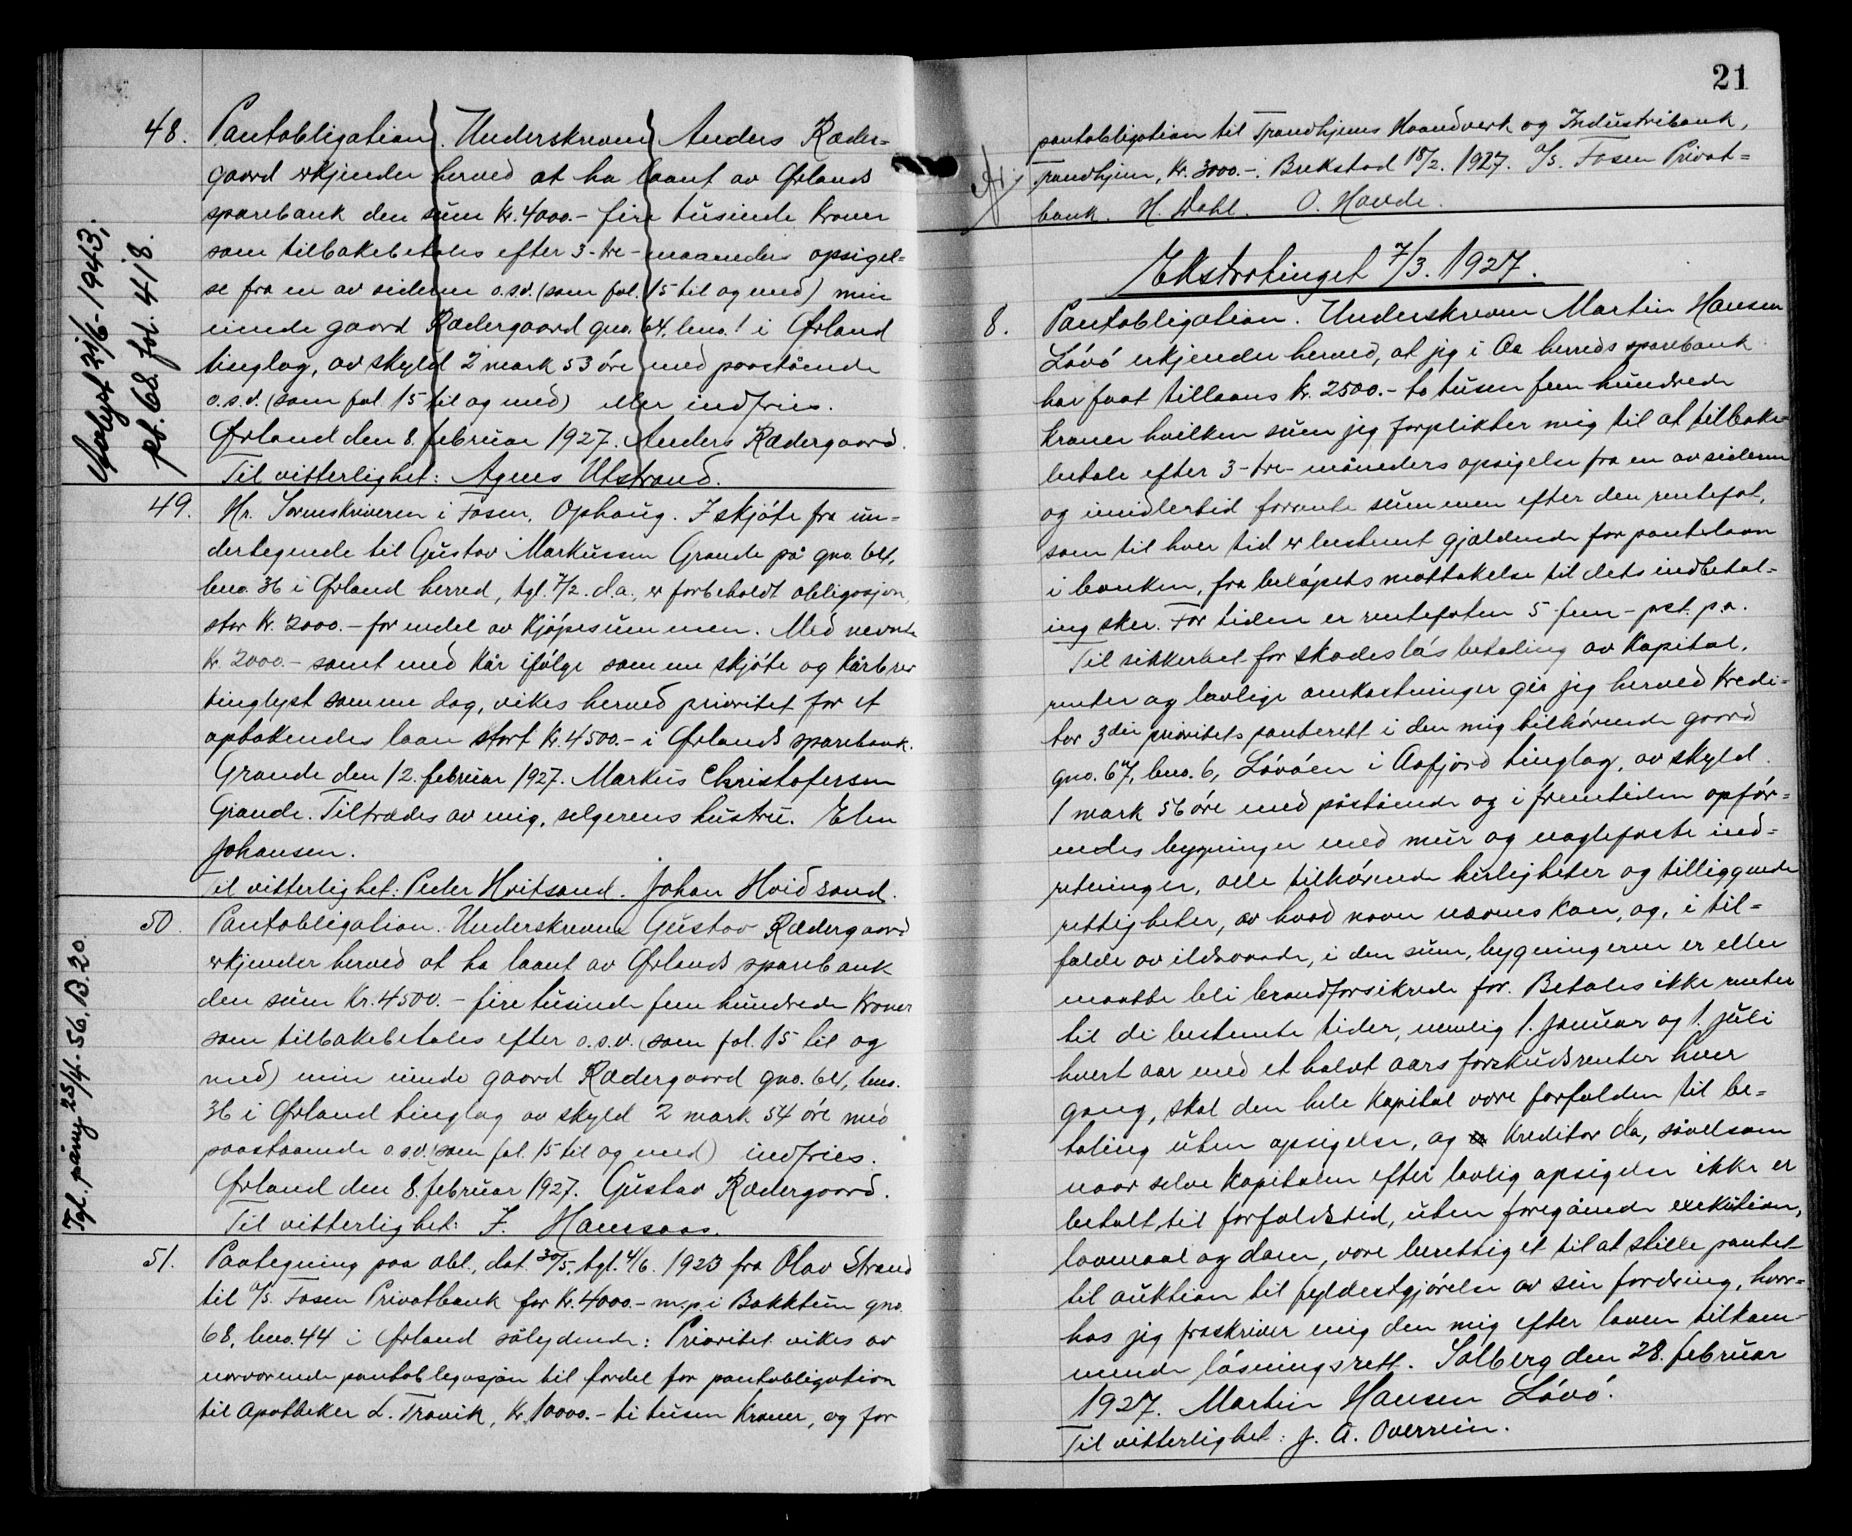 48. Pantobligation. Underskrevne Anders Ræder-
gaard erkjender herved at ha laant av Ørlands
sparebank den sum kr. 4000.- fire tusinde kroner
som tilbakebetales efter 3-tre-maaneders opsigel-
se fra en av siderne o.s.v. (som fol. 15 til og med) min
eiende gaard Rædergaard gno. 64, bno. 1 i Ørland
tinglag, av skyld 2 mark 53 öre med paastående
o.s.v. (som fol. 15 til og med) eller indfries.
Ørland den 8. februar 1927. Anders Rædergaard.
Til vitterlighet: Agnes Utstrand.
Avlyst 21/6-1943,
pb. 68 fol. 418.
49. Hr. Sorenskriveren i Fosen, Ophaug. I skjöte fra un-
dertegnede til Gustav Markussen Grande på gno. 64,
bno. 36 i Ørland herred, tgl. 7/2. d.a., er forbeholdt obligasjon,
stor kr. 2000.- for endel av kjöpesummen. Med nevnte
kr. 2000.- samt med kår ifölge samme skjöte og kårbrev
tinglyst samme dag, vikes herved prioritet for et
optakendes laan stort kr. 4500.- i Ørlands sparebank.
Grande den 12. februar 1927. Markus Christofersen
Grande. Tiltrædes av mig, selgerens hustru. Elen
Johansen.
Til vitterlighet: Peder Hvitsand. Johan Hvidsand.
50. Pantobligation. Underskrevne Gustav Rædergaard
erkjender herved at ha laant av Ørlands sparebank
den sum kr. 4500.- fire tusinde fem hundrede kroner
som tilbakebetales efter o.s.v. (som fol. 15 til og
med) min eiende gaard Rædergaard gno. 64, bno.
36 i Ørland tinglag av skyld 2 mark 54 öre med
paastaaende o.s.v. (som fol. 15 til og med) indfries.
Ørland den 8. februar 1927. Gustav Rædergaard.
Til vitterlighet: J. Hansaas.
Tgl. påny 25/4-56, B. 20.
51. Paategning paa obl., dat. 30/5, tgl. 4/6. 1923 fra Olav Strand
til A/S. Fosen Privatbank for kr. 4000.- m.p. i Bakktun gno.
68, bno. 44 i Ørland sålydende: Prioritet vikes av
nærværende pantobligasjon til fordel for pantobligation
til Apotheker L. Travik, kr. 10000.- ti tusen kroner, og for
21
pantobligation til Trondhjems Haandverk og Industribank,
Trondhjem, kr. 3000.-. Brekstad 18/2. 1927. A/S. Fosen Privat-
bank. H. Dahl. O. Hovde.
Ekstratinget 7/3. 1927.
8. Pantobligation. Underskreven Martin Hansen
Lövö erkjender herved, at jeg i Aa herreds sparebank
har faat tillaans kr. 2500.- to tusen fem hundrede
kroner hvilken sum jeg forplikter mig til at tilbake-
betale efter 3-tre-måneders opsigelse fra en av siderne
og imidlertid forrente summen efter den rentefot,
som til hver tid er bestemt gjældende for pantelaan
i banken, fra belöpets mottakelse til dets indbetal-
ing sker. For tiden er rentefoten 5-fem-pct. p.a.
Til sikkerhet for skadeslös betaling av kapital,
renter og lovlige omkostninger gir jeg herved kredi-
tor 3die prioritets panterett i den mig tilhörende gaard
gno. 67, bno. 6, Lövöen i Aafjord tinglag, av skyld
1 mark 56 öre med påstående og i fremtiden opför-
endes bygninger med mur og naglefaste ind-
retninger, alle tilhörende herligheter og tilliggende
rettigheter, av hvad navn nævnes kan, og, i til-
fælde av ildsvaade, i den sum, bygningerne er eller
maatte bli brandforsikrede for. Betales ikke renter
til de bestemte tider, nemlig 1. januar og 1. juli
hvert aar med et halvt aars forskudsrenter hver
gang, skal den hele kapital være forfalden til be-
taling uten opsigelse, og kreditor da, såvelsom
naar selve kapitalen efter lovlig opsigelse ikke er
betalt til forfaldstid, uten foregående exekution,
lovmaal og dom, være berettiget til at stille pantet
til auktion til fyldestgjörelse av sin fordring, hvor-
hos jeg fraskriver mig den mig efter loven tilkom-
mende lösningsrett. Solberg den 28. februar
1927. Martin Hansen Lövö.
Til vitterlighet: J. A. Overrein.